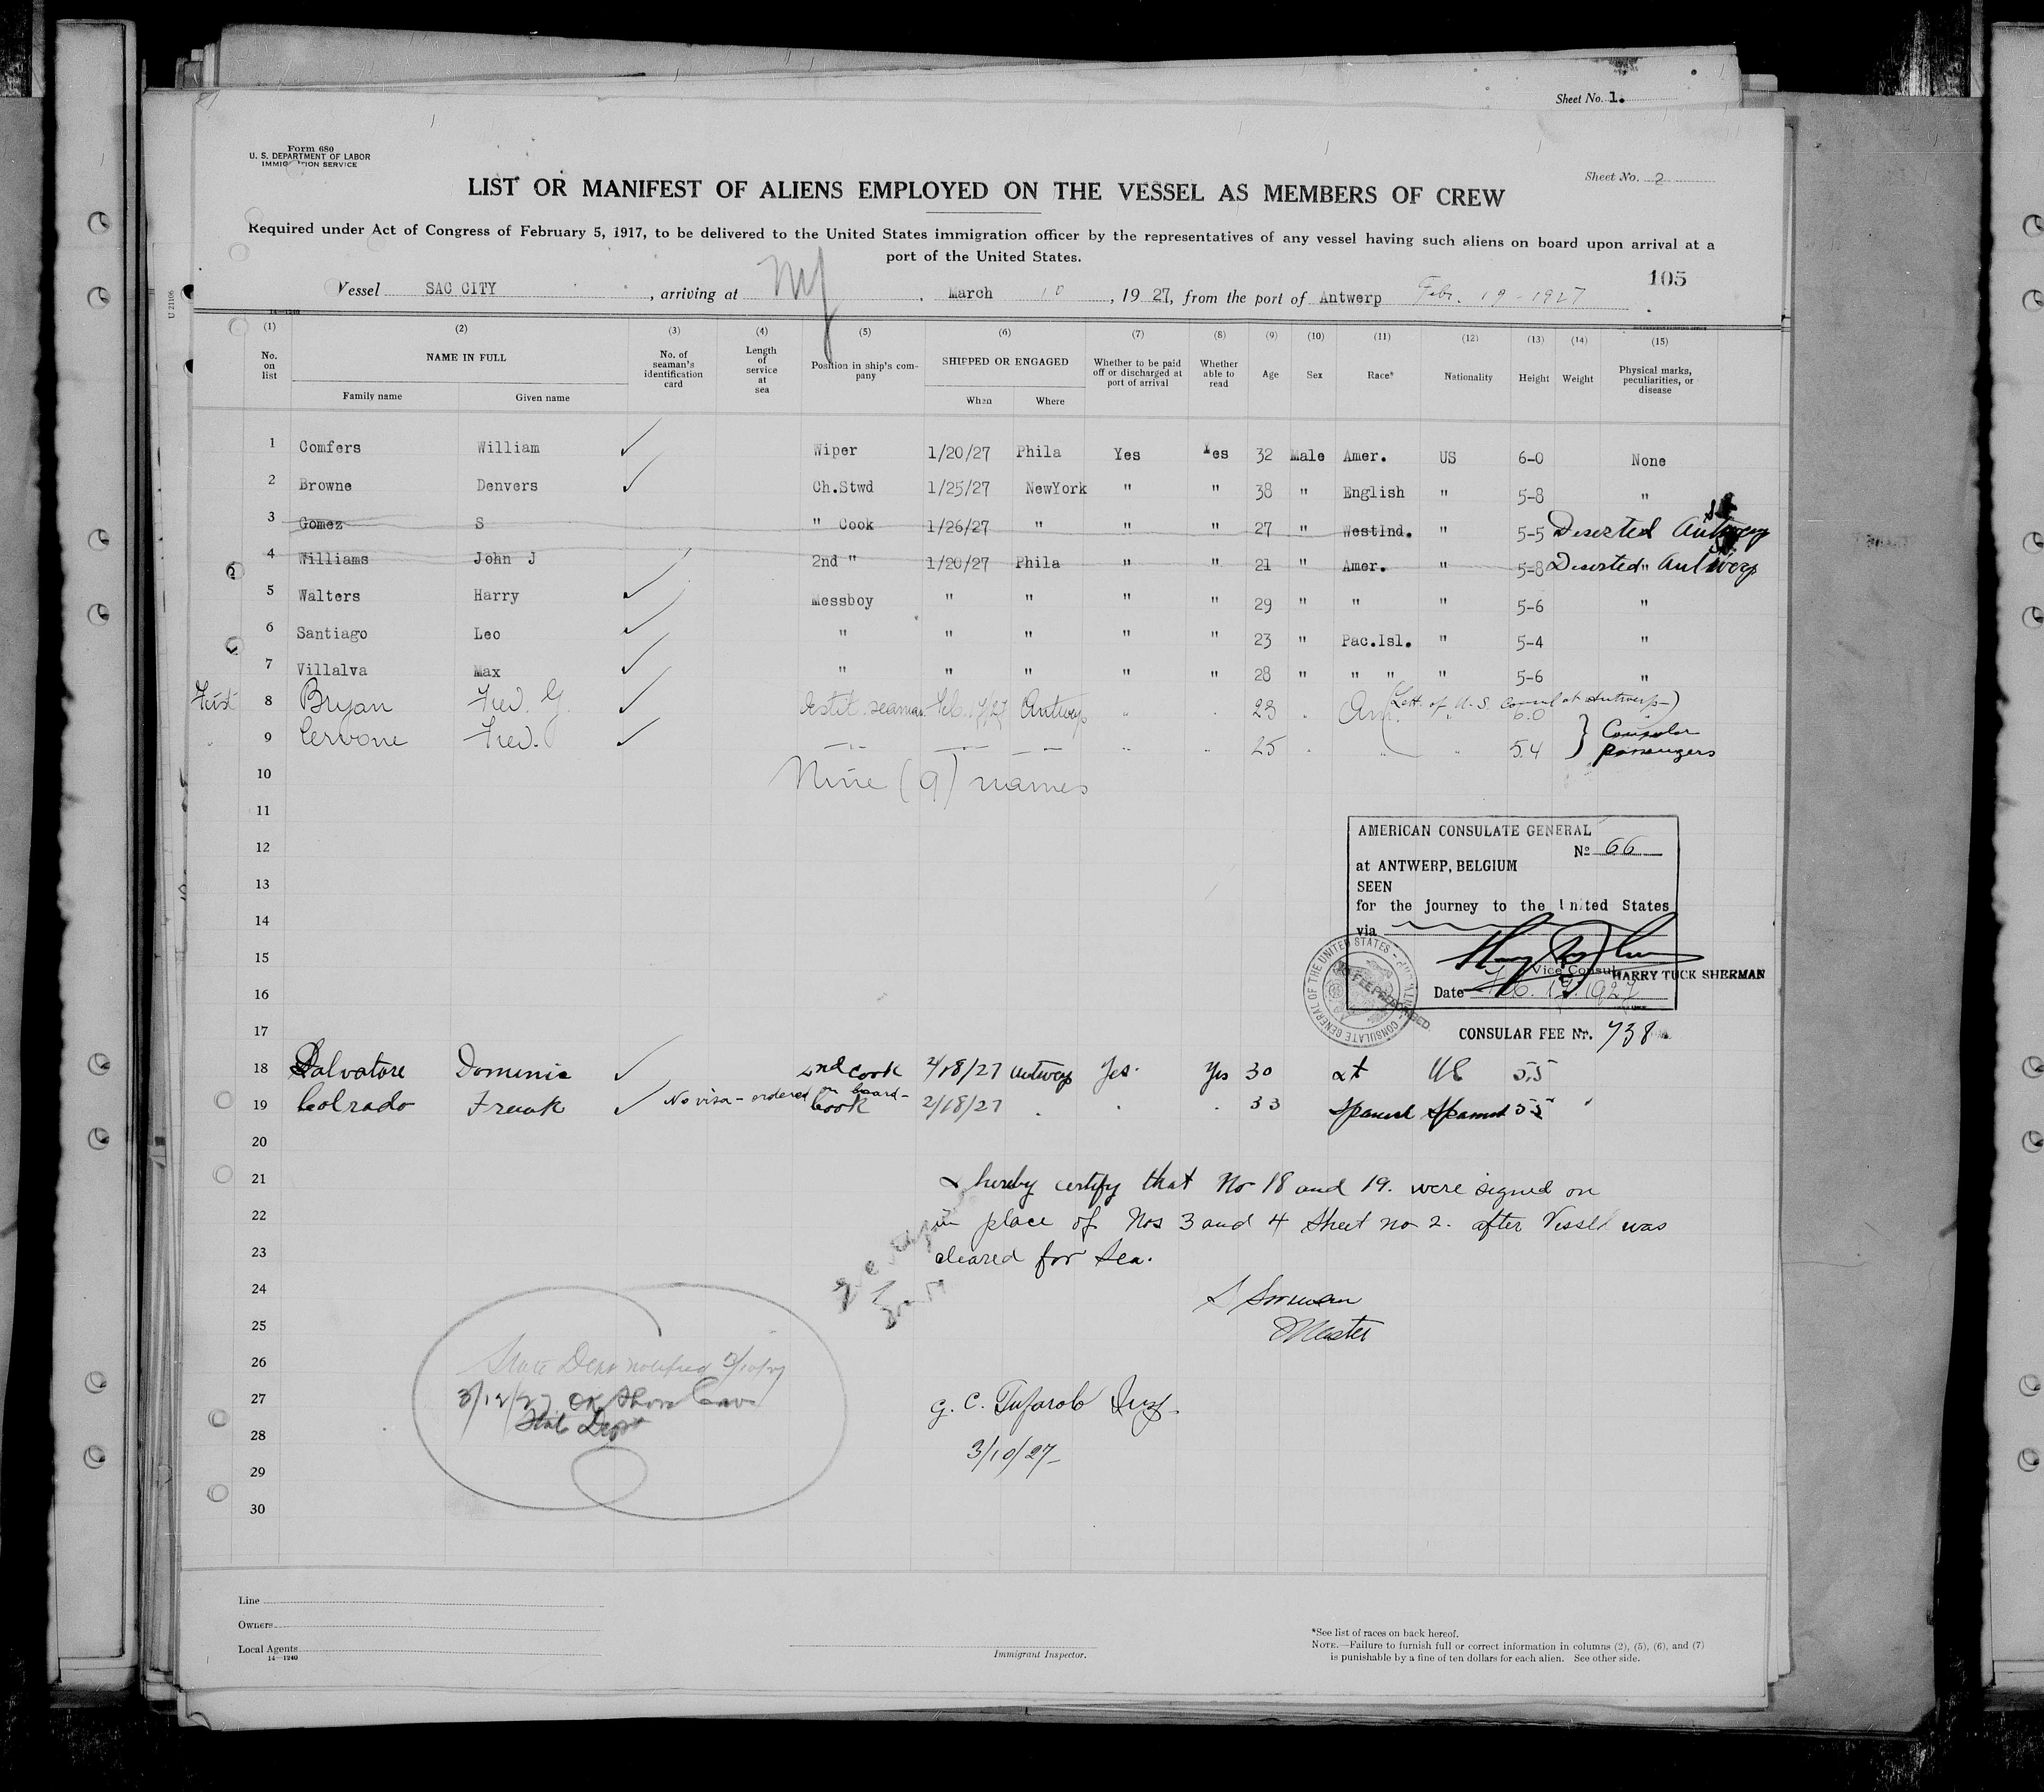 Sheet No. 1.
Form 680
U. S. DEPARTMENT OF LABOR
IMMIGRATION SERVICE
Sheet No. 2
LIST OR MANIFEST OF ALIENS EMPLOYED ON THE VESSEL AS MEMBERS OF CREW
Required under Act of Congress of February 5, 1917, to be delivered to the United States immigration officer by the representatives of any vessel having such aliens on board upon arrival at a
port of the United States.
105
Vessel SAC CITY, arriving at NY, March 10, 1927, from the port of Antwerp Febr. 19-1927
U 21106
(1) (2) (3) (4) (5) (6) (7) (8) (9) (10) (11) (12) (13) (14) (15)
No. on list NAME IN FULL No. of seaman's identification card Length of service at sea Position in ship's company SHIPPED OR ENGAGED Whether to be paid off or discharged at port of arrival Whether able to read Age Sex Race* Nationality Height Weight Physical marks, peculiarities, or disease
Family name Given name When Where
1 Comfers William ✓ Wiper 1/20/27 Phila Yes Yes 32 Male Amer. US 6-0 None
2 Browne Denvers ✓ Ch.Stwd 1/25/27 NewYork " " 38 " English " 5-8 "
3 Gomez S " Cook 1/26/27 " " " 27 " WestInd. " 5-5 Deserted Antwerp
4 Williams John J 2nd " 1/20/27 Phila " " 21 " Amer. " 5-8 Deserted " Antwerp
5 Walters Harry ✓ Messboy " " " " 29 " " " 5-6 "
6 Santiago Leo ✓ " " " " " 23 " Pac.Isl. " 5-4 "
7 Villalva Max ✓ " " " " " 28 " " " " 5-6 "
First 8 Bryan Fred. G. ✓ destit. seaman Feb. 17/27 Antwerp " " 23 " Am. (Lett. of U.S. Consul at Antwerp-) 6.0
9 Cervone Fred. ✓ " " " " " 25 " " " 5.4 } Consular passengers
10 Nine (9) names
11
12
13
14
15
16
17
AMERICAN CONSULATE GENERAL
No 66
at ANTWERP, BELGIUM
SEEN
for the journey to the United States
via
Vice Consul HARRY TUCK SHERMAN
Date Feb. 17. 1927
CONSULATE GENERAL OF THE UNITED STATES
NO FEE PRESCRIBED.
CONSULAR FEE Nr. 738
18 Salvatore Dominic ✓ 2nd Cook 2/18/27 Antwerp Yes. Yes 30 US 5.5
19 Colrado Frank ✓ No visa - ordered on board - Cook 2/18/27 " " " 33 Spanish Spanish 55
20
21 I hereby certify that No 18 and 19. were signed on
22 in place of Nos 3 and 4 Sheet no 2. after Vessel was
23 cleared for Sea.
24 S Sorman
25 Master
26 State Dept notified 3/10/27
27 3/12/27 OK Shore Leave
State Dept
G. C. Tufarolo Insp.
28 3/10/27
29
30
Line
Owners
Local Agents
14-1240
Immigrant Inspector.
*See list of races on back hereof.
NOTE.—Failure to furnish full or correct information in columns (2), (5), (6), and (7)
is punishable by a fine of ten dollars for each alien. See other side.